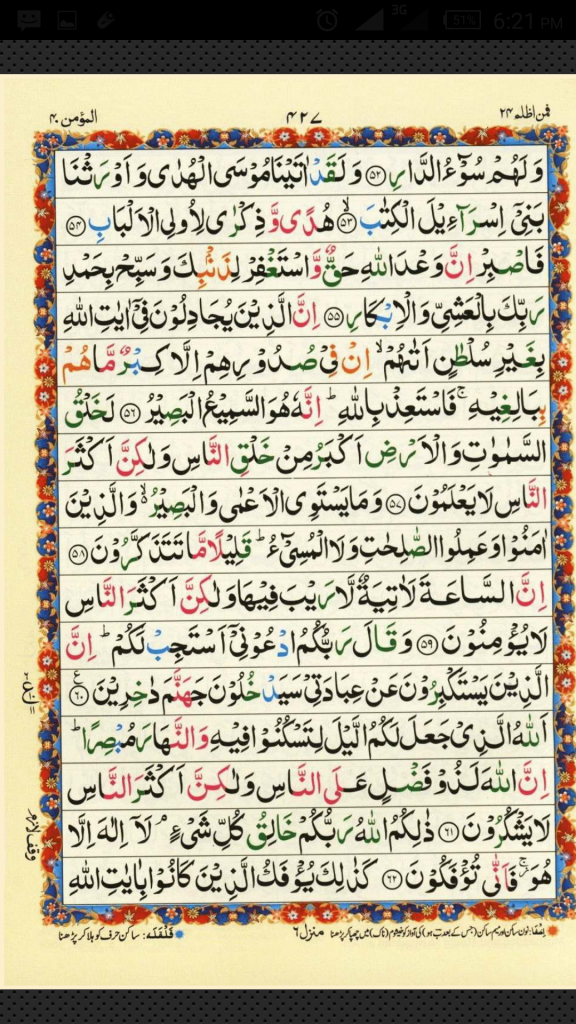 3G 51% 6:21 PM
المؤمن ۴۰ ۴۲۷ فمن اظلم ۲۴
وَلَهُمْ سُوْٓءُ الدَّارِ ۝۵۲ وَلَقَدْ اٰتَيْنَا مُوْسَى الْهُدٰى وَاَوْرَثْنَا
بَنِىْٓ اِسْرَآءِيْلَ الْكِتٰبَ ۝۵۳ۙ هُدًى وَّذِكْرٰى لِاُولِى الْاَلْبَابِ ۝۵۴
فَاصْبِرْ اِنَّ وَعْدَ اللّٰهِ حَقٌّ وَّاسْتَغْفِرْ لِذَنْۢبِكَ وَسَبِّحْ بِحَمْدِ
رَبِّكَ بِالْعَشِىِّ وَالْاِبْكَارِ ۝۵۵ اِنَّ الَّذِيْنَ يُجَادِلُوْنَ فِىْٓ اٰيٰتِ اللّٰهِ
بِغَيْرِ سُلْطٰنٍ اَتٰىهُمْ ۙ اِنْ فِىْ صُدُوْرِهِمْ اِلَّا كِبْرٌ مَّا هُمْ
بِبَالِغِيْهِ ۚ فَاسْتَعِذْ بِاللّٰهِ ؕ اِنَّهٗ هُوَ السَّمِيْعُ الْبَصِيْرُ ۝۵۶ لَخَلْقُ
السَّمٰوٰتِ وَالْاَرْضِ اَكْبَرُ مِنْ خَلْقِ النَّاسِ وَلٰكِنَّ اَكْثَرَ
النَّاسِ لَا يَعْلَمُوْنَ ۝۵۷ وَمَا يَسْتَوِى الْاَعْمٰى وَالْبَصِيْرُ ۙ۬ وَالَّذِيْنَ
اٰمَنُوْا وَعَمِلُوا الصّٰلِحٰتِ وَلَا الْمُسِىْٓءُ ؕ قَلِيْلًا مَّا تَتَذَكَّرُوْنَ ۝۵۸
اِنَّ السَّاعَةَ لَاٰتِيَةٌ لَّا رَيْبَ فِيْهَا وَلٰكِنَّ اَكْثَرَ النَّاسِ
لَا يُؤْمِنُوْنَ ۝۵۹ وَقَالَ رَبُّكُمُ ادْعُوْنِىْٓ اَسْتَجِبْ لَكُمْ ؕ اِنَّ
الَّذِيْنَ يَسْتَكْبِرُوْنَ عَنْ عِبَادَتِىْ سَيَدْخُلُوْنَ جَهَنَّمَ دٰخِرِيْنَ ۝۶۰ ع
اَللّٰهُ الَّذِىْ جَعَلَ لَكُمُ الَّيْلَ لِتَسْكُنُوْا فِيْهِ وَالنَّهَارَ مُبْصِرًا ؕ
اِنَّ اللّٰهَ لَذُوْ فَضْلٍ عَلَى النَّاسِ وَلٰكِنَّ اَكْثَرَ النَّاسِ
لَا يَشْكُرُوْنَ ۝۶۱ ذٰلِكُمُ اللّٰهُ رَبُّكُمْ خَالِقُ كُلِّ شَىْءٍ ۘ لَاۤ اِلٰهَ اِلَّا
هُوَ ۚ فَاَنّٰى تُؤْفَكُوْنَ ۝۶۲ كَذٰلِكَ يُؤْفَكُ الَّذِيْنَ كَانُوْا بِاٰيٰتِ اللّٰهِ
وقف لازم
منزل ۶
قَلْقَلَه: ساکن حرف کو ہلا کر پڑھنا